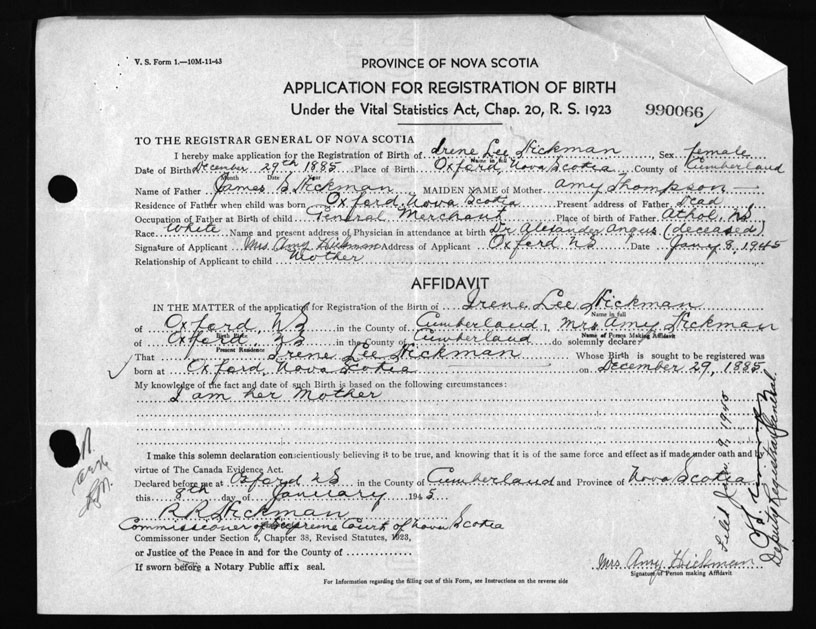 V. S. Form 1.—10M-11-43
PROVINCE OF NOVA SCOTIA
APPLICATION FOR REGISTRATION OF BIRTH
Under the Vital Statistics Act, Chap. 20, R. S. 1923
990066
TO THE REGISTRAR GENERAL OF NOVA SCOTIA
I hereby make application for the Registration of Birth of Irene Lee Hickman Sex female
Name in full
Date of Birth December 29th 1885 Place of Birth Oxford Nova Scotia County of Cumberland
Month Date Year
Name of Father James S. Hickman MAIDEN NAME of Mother Amy Thompson
Residence of Father when child was born Oxford Nova Scotia Present address of Father Dead
Occupation of Father at Birth of child General Merchant Place of birth of Father Athol, NS
Race White Name and present address of Physician in attendance at birth Dr Alexander Angus (deceased)
Signature of Applicant Mrs. Amy Hickman Address of Applicant Oxford NS Date Jany 8, 1945
Relationship of Applicant to child Mother
AFFIDAVIT
IN THE MATTER of the application for Registration of the Birth of Irene Lee Hickman
Name in full
of Oxford, NS in the County of Cumberland I, Mrs Amy Hickman
Birth Place Name of Person Making Affidavit
of Oxford, NS in the County of Cumberland do solemnly declare
Present Residence
That Irene Lee Hickman Whose Birth is sought to be registered was
born at Oxford, Nova Scotia on December 29, 1885
My knowledge of the fact and date of such Birth is based on the following circumstances:
I am her Mother
I make this solemn declaration conscientiously believing it to be true, and knowing that it is of the same force and effect as if made under oath and by
virtue of The Canada Evidence Act.
Declared before me at Oxford NS in the County of Cumberland and Province of Nova Scotia
this 8th day of January 1945
R R Hickman
Commissioner of Supreme Court of Nova Scotia
Commissioner under Section 5, Chapter 38, Revised Statutes, 1923,
or Justice of the Peace in and for the County of
If sworn before a Notary Public affix seal.
Mrs. Amy Hickman
Signature of Person making Affidavit
For Information regarding the filling out of this Form, see Instructions on the reverse side
Filed Jan 9, 1945
Deputy Registrar General.